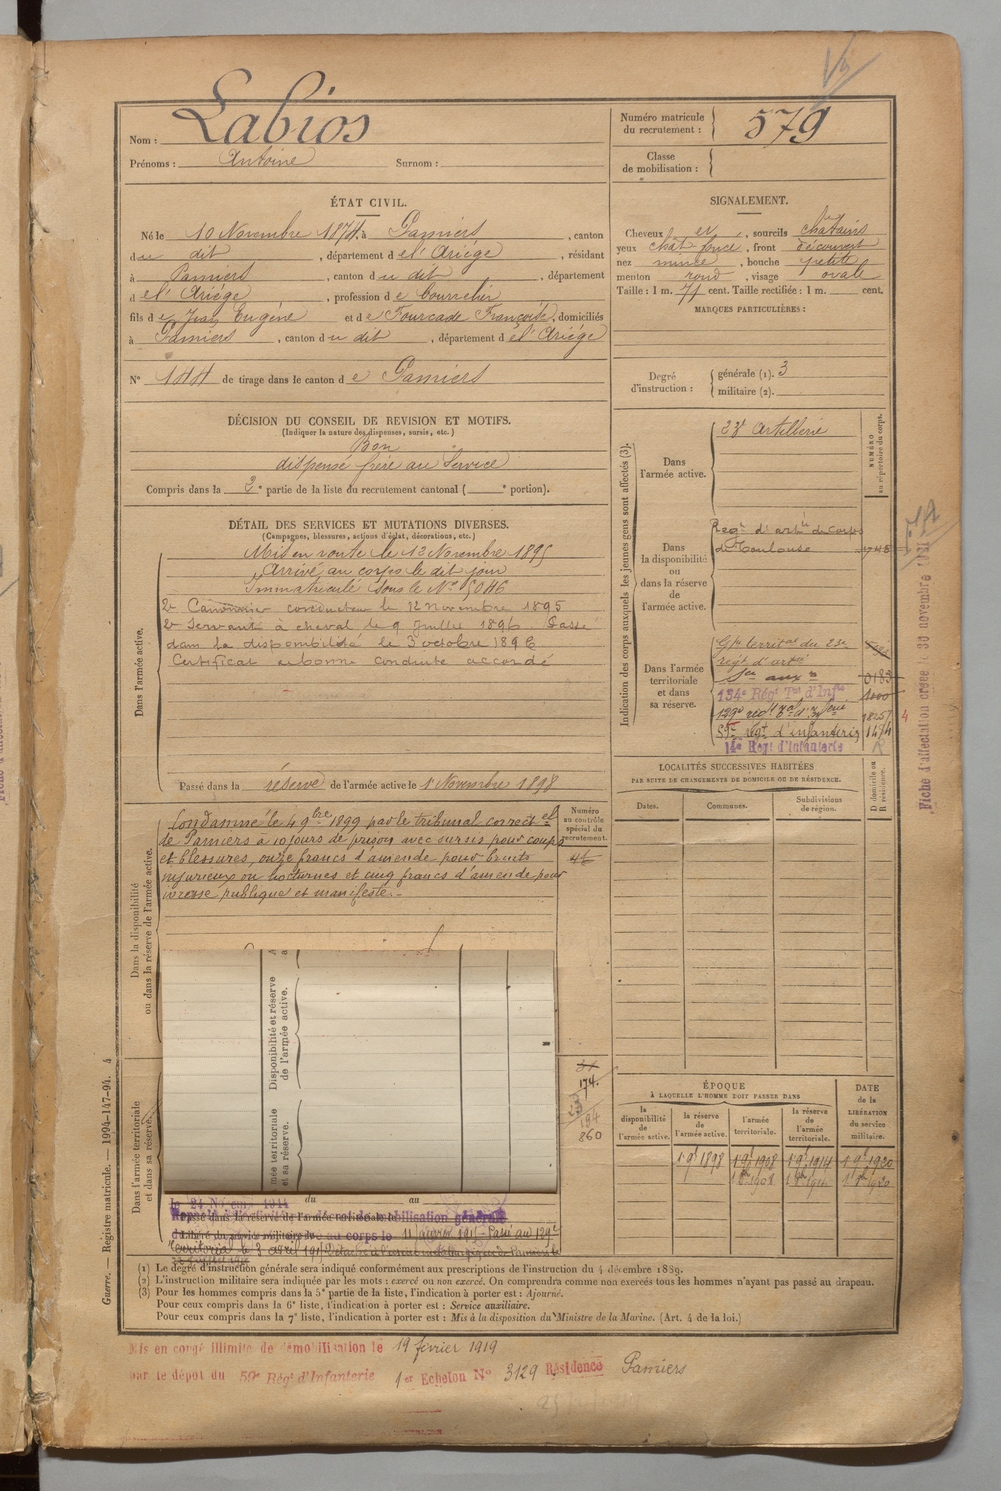 Nom : Labios
Prénoms : Antoine Surnom :
Numéro matricule du recrutement : 579
Classe de mobilisation :
ÉTAT CIVIL.
Né le 10 Novembre 1874, à Pamiers, canton
du dit, département de l'Ariége, résidant
à Pamiers, canton du dit, département
de l'Ariége, profession de bourrelier
fils de Jean Eugène et de Fourcade Françoise, domiciliés
à Pamiers, canton du dit, département de l'Ariége
N° 144 de tirage dans le canton de Pamiers
SIGNALEMENT.
Cheveux et, sourcils chatains
yeux chat foncé, front découvert
nez mince, bouche petite
menton rond, visage ovale
Taille : 1 m. 71 cent. Taille rectifiée : 1 m. cent.
MARQUES PARTICULIÈRES :
Degré d'instruction : générale (1). 3
militaire (2).
DÉCISION DU CONSEIL DE REVISION ET MOTIFS.
(Indiquer la nature des dispenses, sursis, etc.)
Bon
dispensé frère au Service
Compris dans la 2e partie de la liste du recrutement cantonal ( e portion).
DÉTAIL DES SERVICES ET MUTATIONS DIVERSES.
(Campagnes, blessures, actions d'éclat, décorations, etc.)
Dans l'armée active.
Mis en route le 12 Novembre 1895
Arrivé au corps le dit jour
Immatriculé sous le No 5046
2e Canonnier conducteur le 12 novembre 1895
2e Servant à cheval le 9 Juillet 1896 Passé
dans la disponibilité le 3 octobre 1896
Certificat de bonne conduite accordé
Passé dans la réserve de l'armée active le 1er Novembre 1898
Indication des corps auxquels les jeunes gens sont affectés (3).
NUMÉRO au répertoire du corps.
Dans l'armée active.
23e Artillerie
Dans la disponibilité ou dans la réserve de l'armée active.
Regt d'artie de corps
de Toulouse
Dans l'armée territoriale et dans sa réserve.
Gpe territal du 23e
régt d'artie
134e Régt Tal d'Infie
129e régt
régt d'infanterie 1474
14e Régt d'Infanterie
LOCALITÉS SUCCESSIVES HABITÉES
PAR SUITE DE CHANGEMENTS DE DOMICILE OU DE RÉSIDENCE.
Dates.
Communes.
Subdivisions de région.
D domicile ou R résidence.
Dans la disponibilité ou dans la réserve de l'armée active.
Numéro au contrôle spécial du recrutement.
Condamné le 4 9bre 1899 par le tribunal correctel
de Pamiers à 10 jours de prison avec sursis pour coups
et blessures, onze francs d'amende pour bruits
injurieux ou nocturnes et cinq francs d'amende pour
ivresse publique et manifeste.
Disponibilité et réserve de l'armée active.
et sa réserve.
174
194
860
Dans l'armée territoriale et dans sa réserve.
du au
Rappelé
mobilisation générale
au corps le 11 janvier 1915 Passé au 129e
Territorial le 3 avril 1915
ÉPOQUE
À LAQUELLE L'HOMME DOIT PASSER DANS
la disponibilité de l'armée active.
la réserve de l'armée active.
l'armée territoriale.
la réserve de l'armée territoriale.
DATE de la LIBÉRATION du service militaire.
1 9bre 1898
1 9bre 1908
1 9bre 1914
1 9bre 1920
(1) Le degré d'instruction générale sera indiqué conformément aux prescriptions de l'instruction du 4 décembre 1889.
(2) L'instruction militaire sera indiquée par les mots : exercé ou non exercé. On comprendra comme non exercés tous les hommes n'ayant pas passé au drapeau.
(3) Pour les hommes compris dans la 5e partie de la liste, l'indication à porter est : Ajourné.
Pour ceux compris dans la 6e liste, l'indication à porter est : Service auxiliaire.
Pour ceux compris dans la 7e liste, l'indication à porter est : Mis à la disposition du Ministre de la Marine. (Art. 4 de la loi.)
Mis en congé illimité de démobilisation le 19 février 1919
par le dépôt du 59e Régt d'Infanterie 1er Echelon N° 3129 Résidence Pamiers
Guerre. — Registre matricule. — 1994-147-94. 4